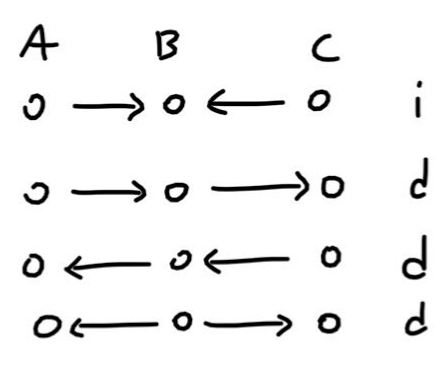 A B C
o → o ← o i
o → o → o d
o ← o ← o d
o ← o → o d